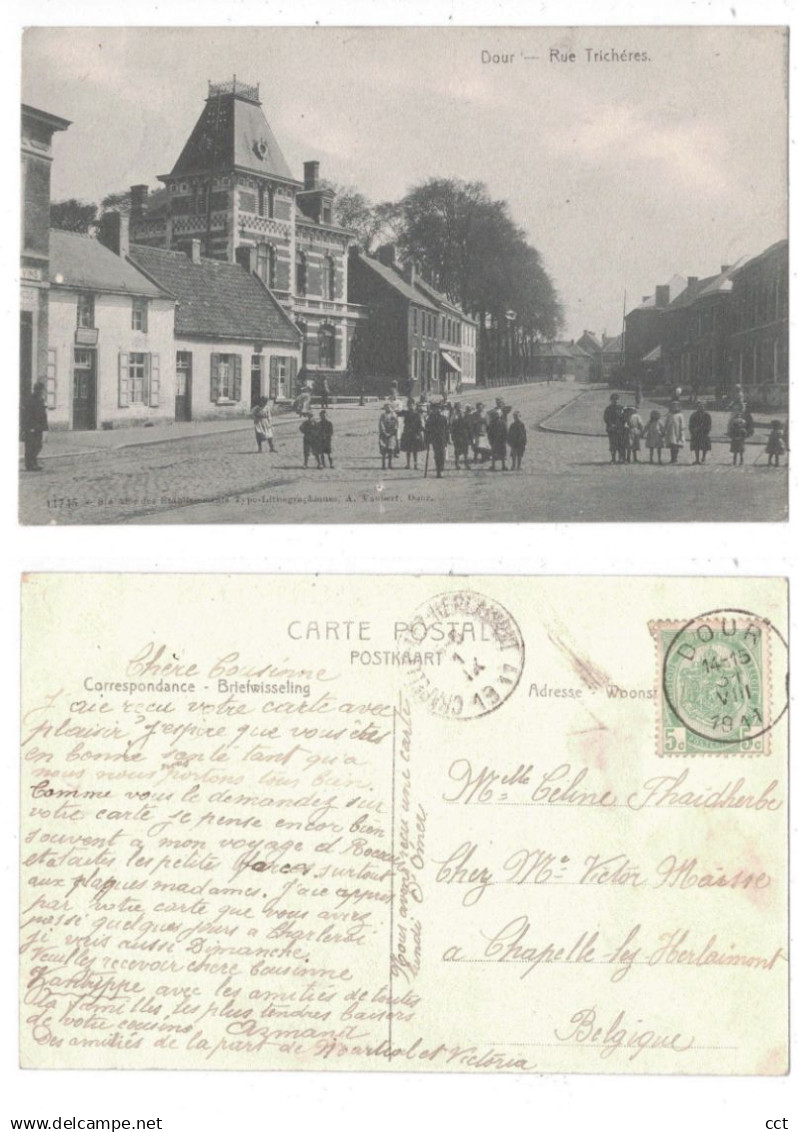 Dour — Rue Trichéres.
11745 Etablissements Typo-Lithographiques, A. Vaubert, Dour.
CARTE POSTALE
POSTKAART
Correspondance - Briefwisseling
Adresse - Woonst
DOUR
14-15
31
VIII
1911
5c 5c
CHAPELLE HERLAIMONT
1
IX
1911
Chère Cousinne
J'aie reçu votre carte avec
plaisir j'espère que vous êtes
en bonne santé tant qu'a
nous nous portons tous bien.
Comme vous le demandez sur
votre carte je pense encor bien
souvent a mon voyage d
et a tantes les petites farces surtout
aux plaques madames. J'aie appris
par votre carte que vous aviez
passé quelques jours a Charleroi
j'y vais aussi Dimanche.
Veuillez recevoir chère Cousinne
avec les amitiés de toutes
la familles, les plus tendres baisers
de votre cousins Armand
Des amitiés de la part de et Victoria
Nous avons reçu une carte
lundi d'Omer
Melle Celine Thaidherbe
Chez Mr Victor Maisse
a Chapelle lez Herlaimont
Belgique
delcampe.net
cct